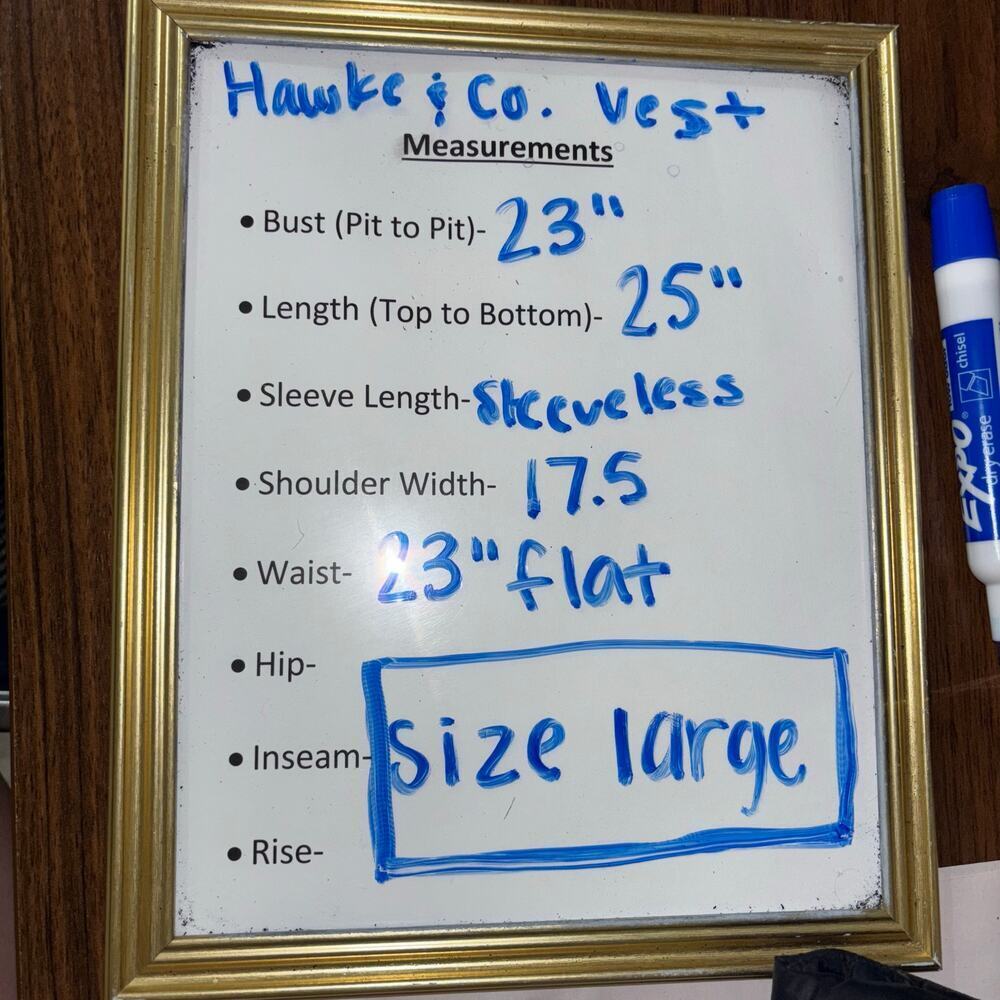 Hawke & Co. Vest
Measurements
• Bust (Pit to Pit)- 23"
• Length (Top to Bottom)- 25"
• Sleeve Length- Sleeveless
• Shoulder Width- 17.5
• Waist- 23" flat
• Hip-
• Inseam-
size large
• Rise-
EXPO®
dry erase
chisel